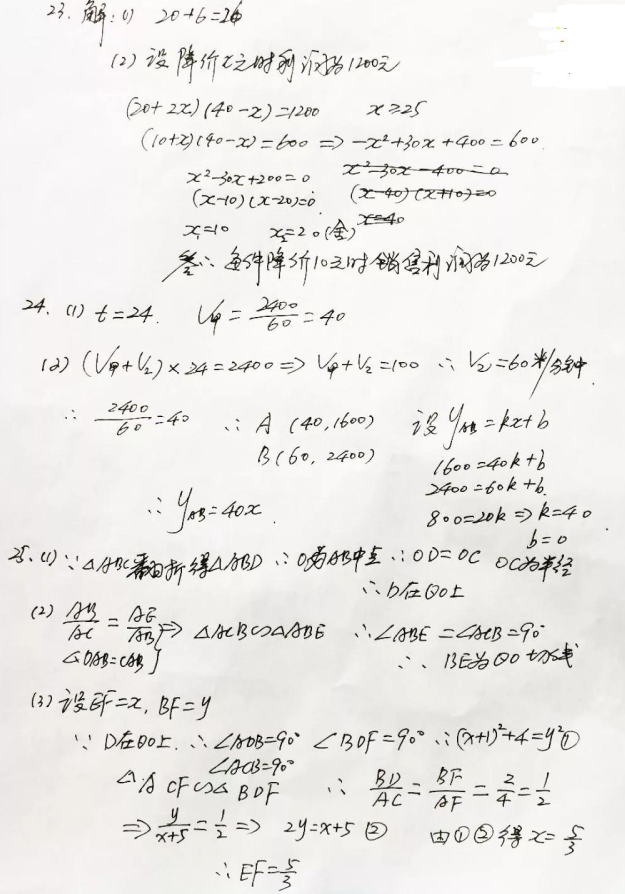 23. 解:(1) 20+6=26
(2) 设降价x元时利润为1200元
(20+2x)(40-x)=1200 x≥25
(10+x)(40-x)=600 => -x²+30x+400=600
x²-30x+200=0 x²-30x-400=0
(x-10)(x-20)=0 (x-40)(x+10)=0
x₁=10 x₂=20(舍) x=40
答∴每件降价10元时销售利润为1200元
24. (1) t=24. V甲=2400/60=40
(2) (V甲+V乙)×24=2400 => V甲+V乙=100 ∴V乙=60米/分钟
∴ 2400/60=40 ∴ A (40,1600) 设y_AB=kx+b
B(60,2400) 1600=40k+b
2400=60k+b
∴ y_AB=40x 800=20k => k=40
b=0
25.(1) ∵△ABC翻折得△ABD ∴O为AB中点 ∴OD=OC OC为半径
∴D在⊙O上
(2) AB/AC=AE/AB } => △ACB∽△ABE ∴∠ABE=∠ACB=90°
∠DAB=CAB ∴BE为⊙O切线
(3) 设EF=x, BF=y
∵D在⊙O上 ∴∠ADB=90° ∠BDF=90° ∴(x+1)²+4=y²①
∠ACB=90°
△ACF∽△BDF ∴ BD/AC=BF/AF=2/4=1/2
=> y/(x+5)=1/2 => 2y=x+5 ② 由①②得x=5/3
∴EF=5/3